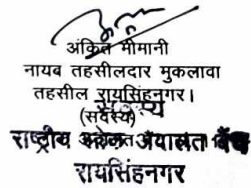 अंकित मीमानी
नायब तहसीलदार मुकलावा
तहसील रायसिंहनगर।
(सदस्य)
राष्ट्रीय लोक अदालत
रायसिंहनगर